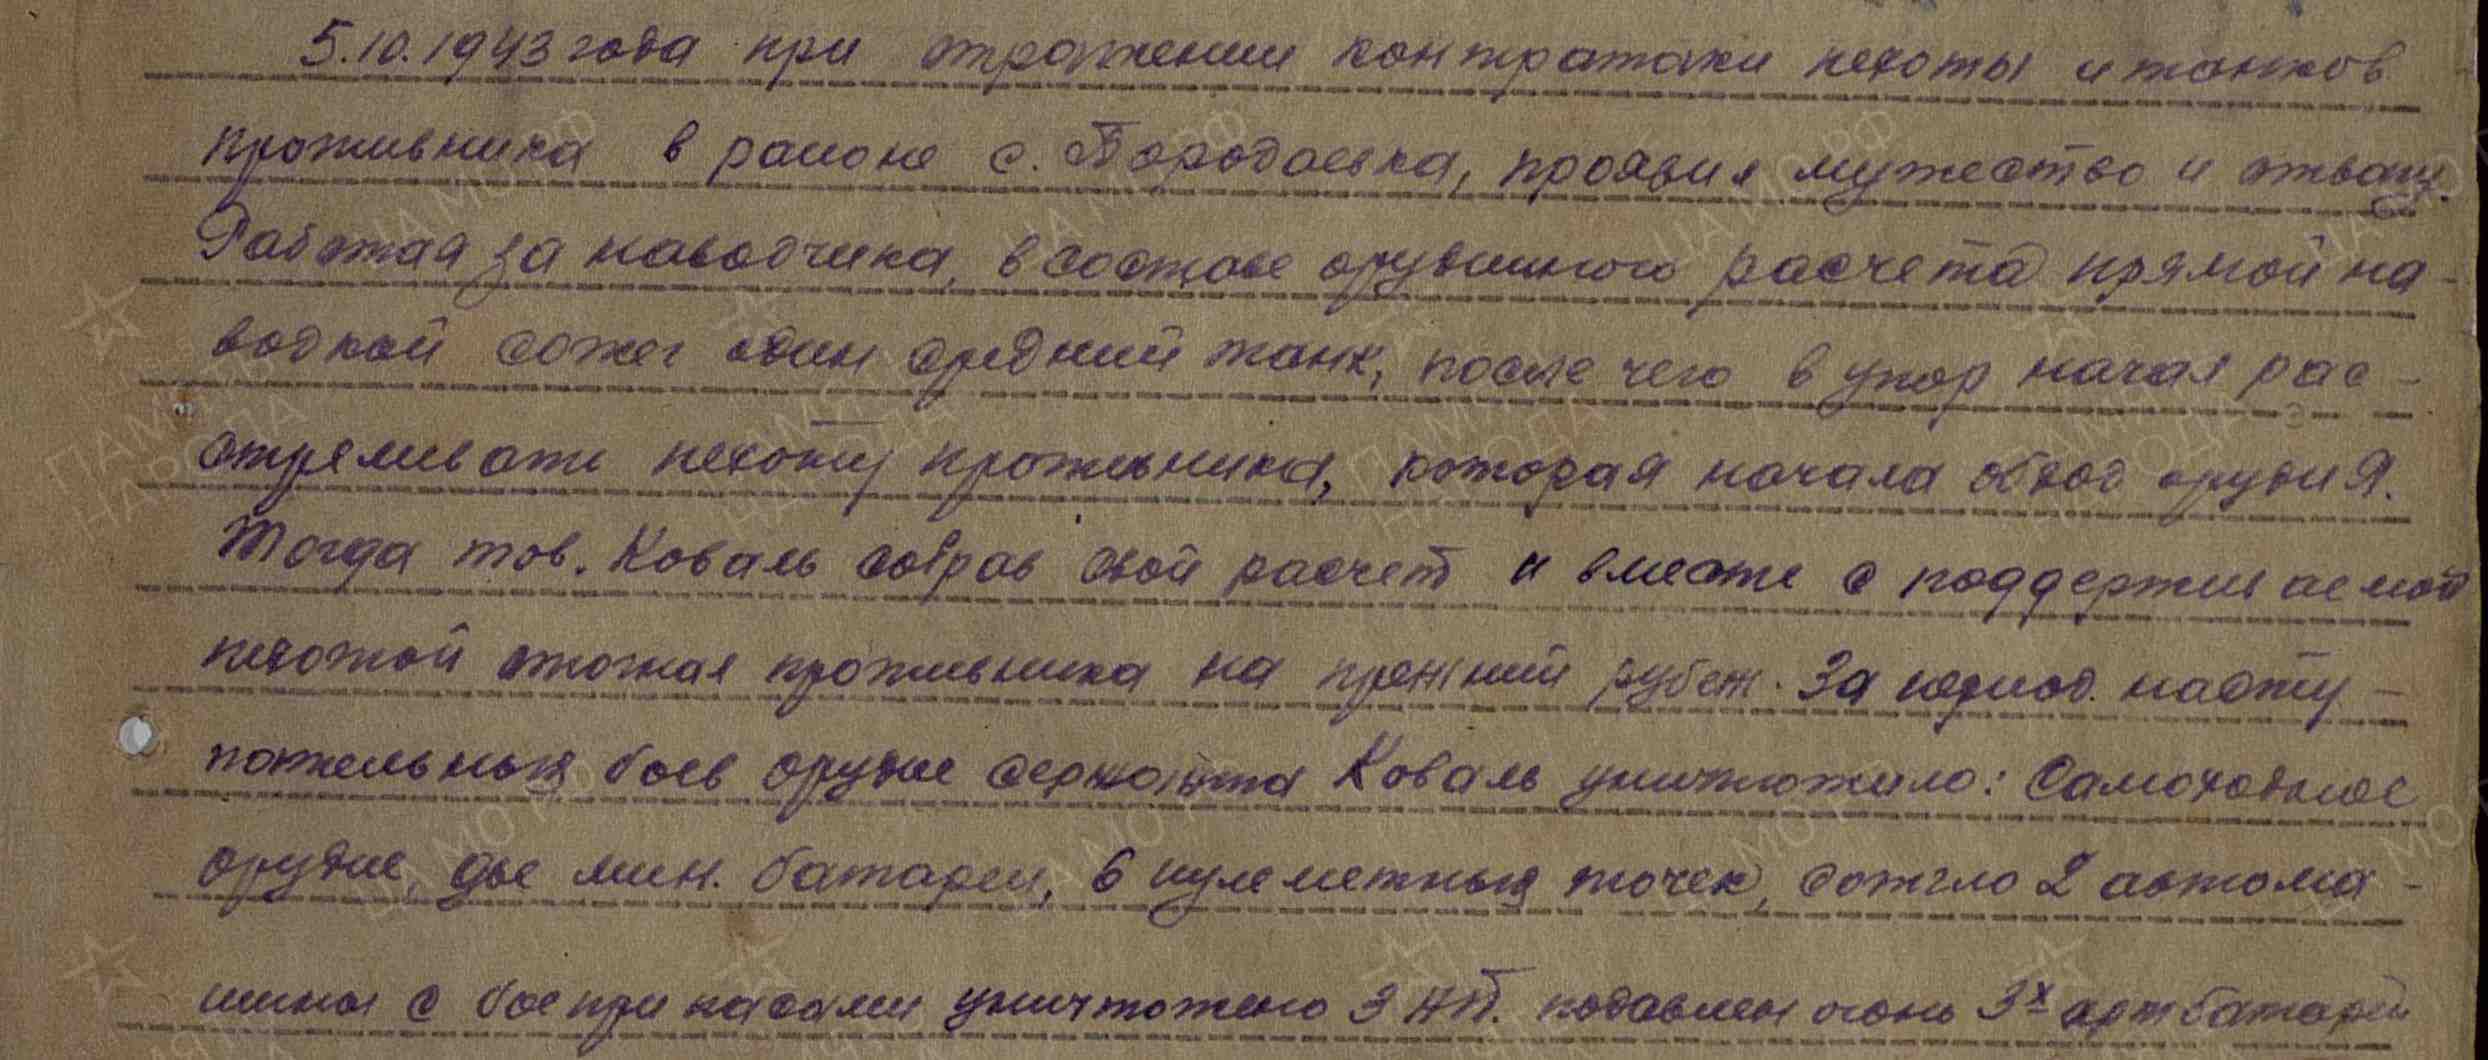 5.10.1943 года при отражении контратаки пехоты и танков
противника в районе с. Бородаевка, проявил мужество и отвагу.
Работая за наводчика, в составе орудийного расчета прямой на-
водкой сожег один средний танк, после чего в упор начал рас-
стреливать пехоту противника, которая начала обход орудия.
Тогда тов. Коваль собрав свой расчет и вместе с поддерживаемой
пехотой отогнал противника на прежний рубеж. За период насту-
пательных боев орудие сержанта Коваль уничтожило: Самоходное
орудие, две мин. батареи, 6 пулеметных точек, сожгло 2 автома-
шины с боеприпасами уничтожено 3 НП. подавлен огонь 3х артбатарей
ПАМЯТЬ НАРОДА
ЦА МО РФ